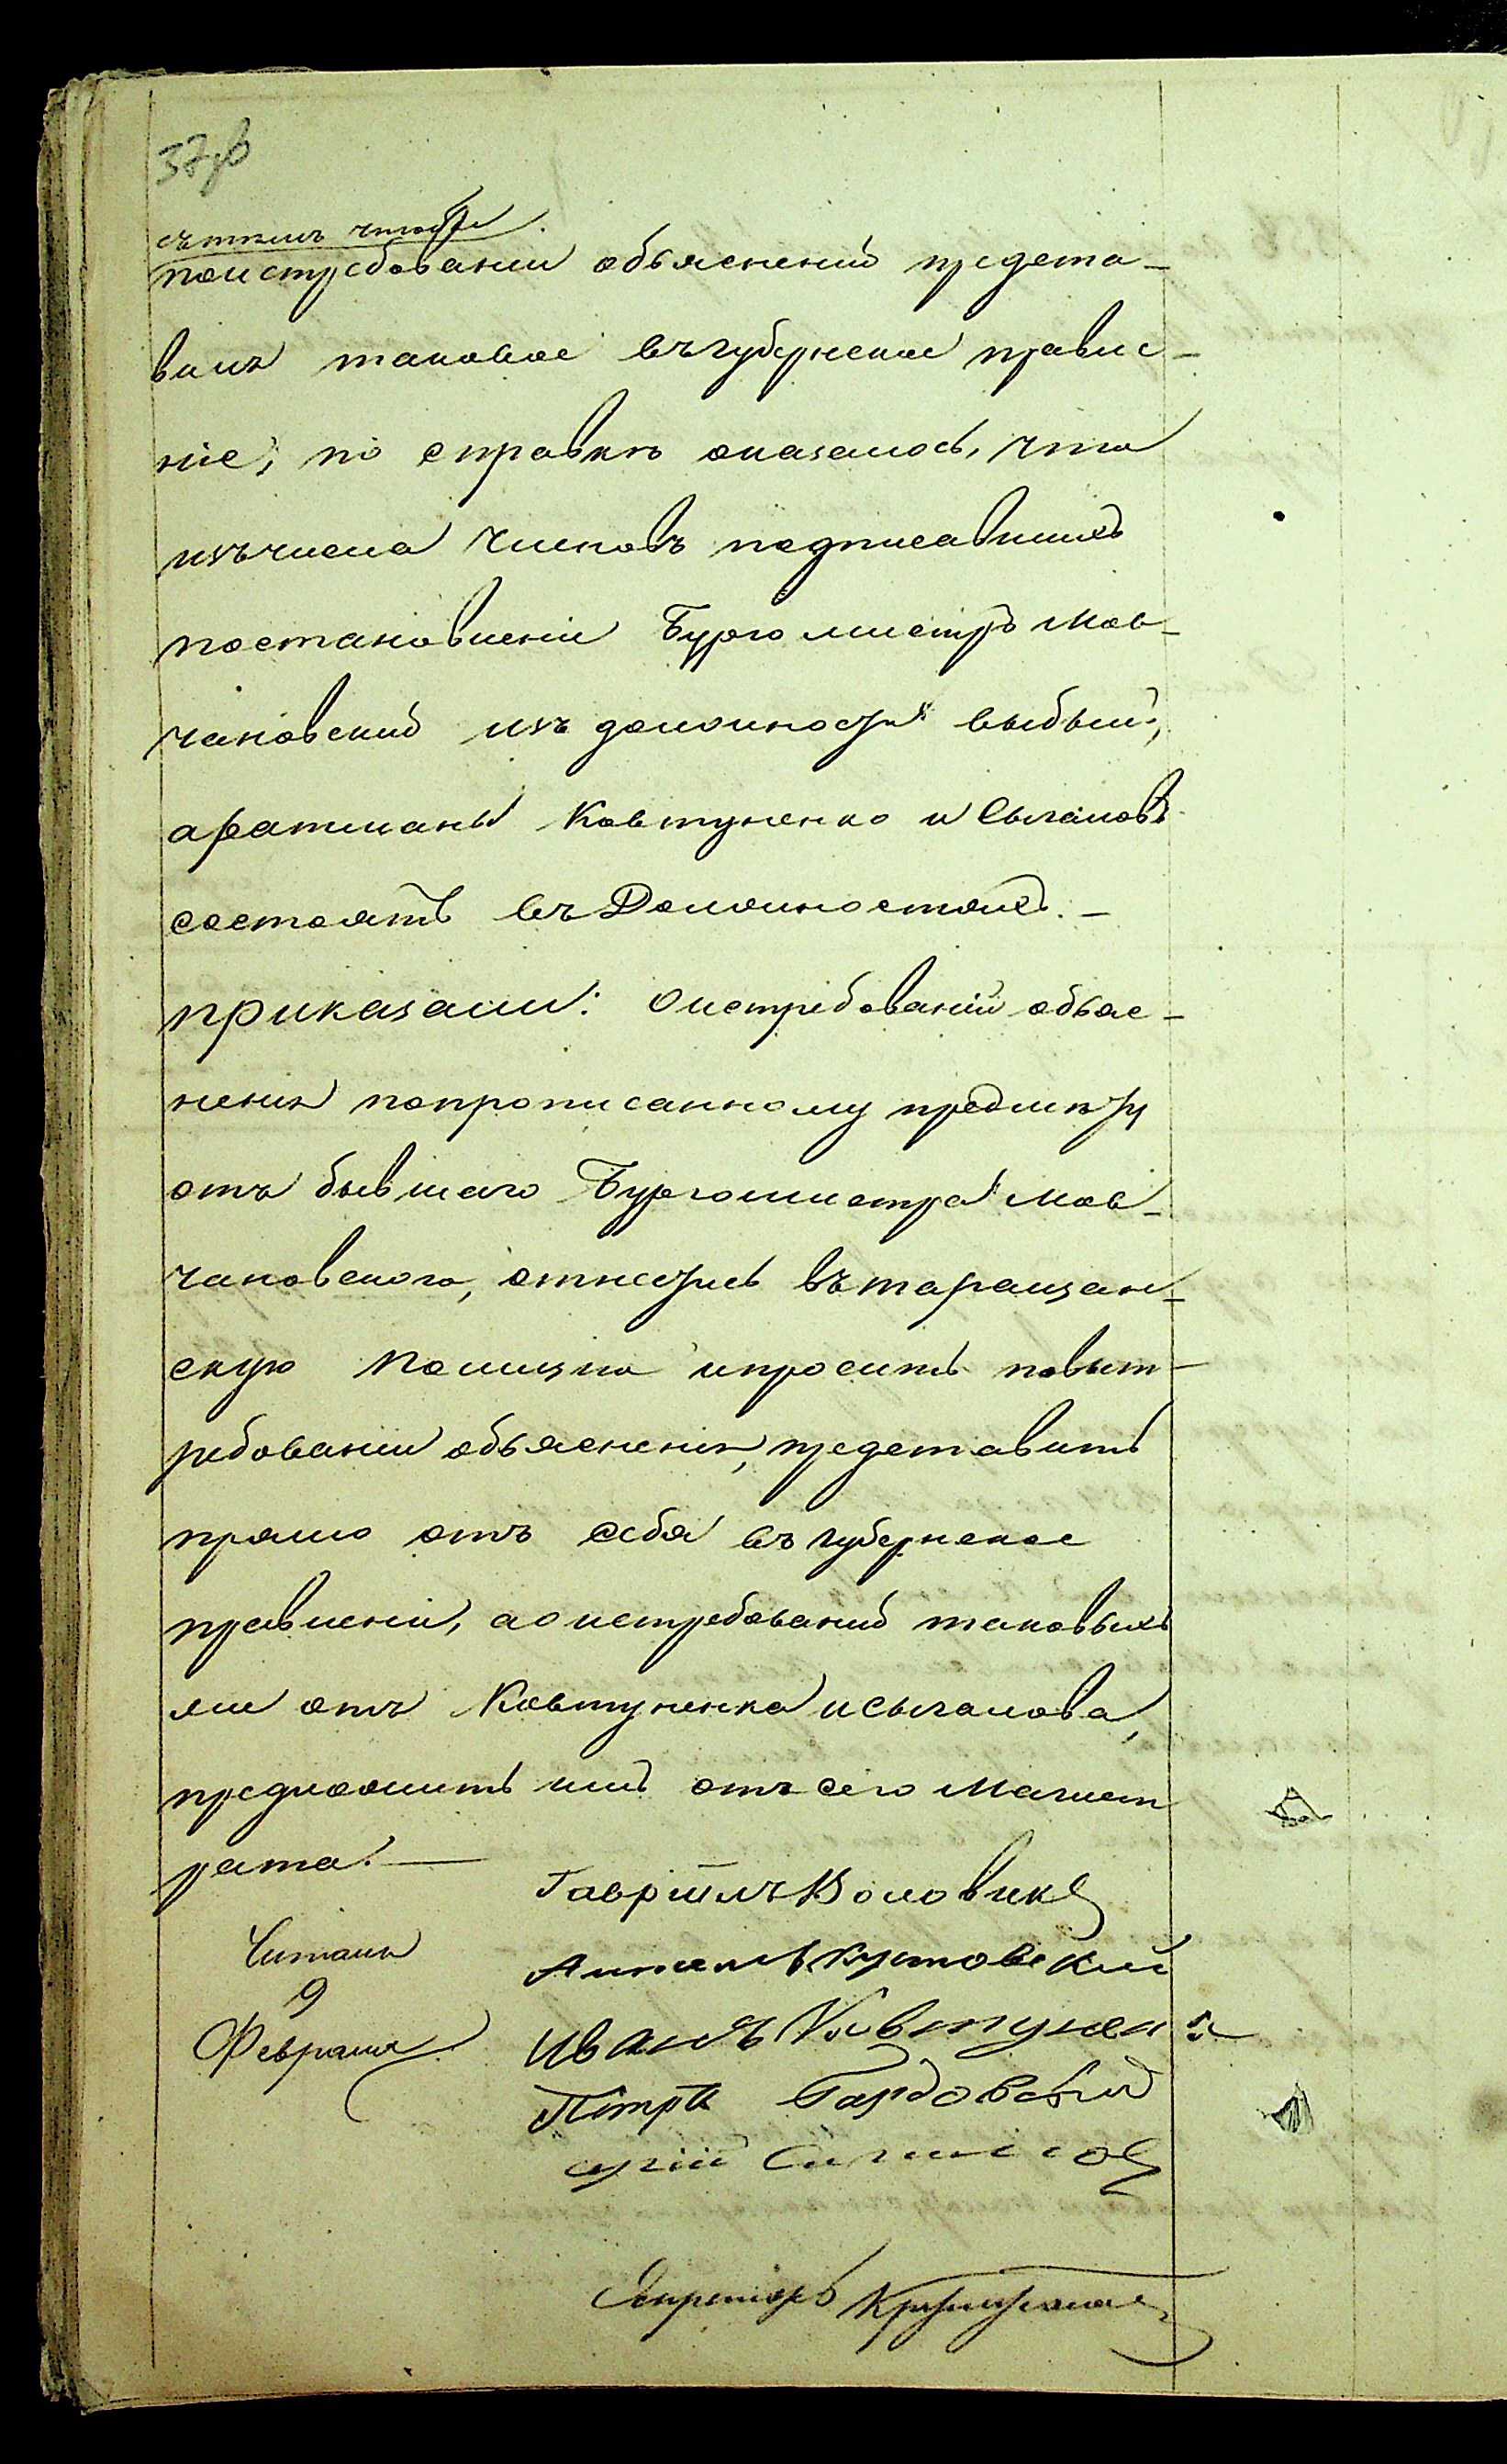 37об
съ тѣмъ чтобы
поистребованіи объясненій предста-
вилъ таковое въ губернское правле-
ніе; по справкѣ оказалось, что
изъ числа членовъ подписавшихъ
постановленіе Бургомистръ Мов-
чановскій изъ должности выбылъ,
а ратманы Ковтуненко и Сыгаловъ
состоятъ въ Должностяхъ. –
приказали: О истребованіи объяс-
ненія попрописанному предмѣту
отъ бывшаго Бургомистра Мов-
чановского, отнестись въ таращан-
скую Полицію и просить повыт-
ребованіи объясненія, представить
прямо отъ себя въ губернское
правленіе, а о истребованіи таковыхъ
же отъ Ковтуненка и Сыгалова,
предложить имъ отъ сего Магист
рата. —
Гавріилъ Воловикъ
Читали
9
Февраля
Кутовский
Иванъ Ковтуненко
Петръ
Секретарь